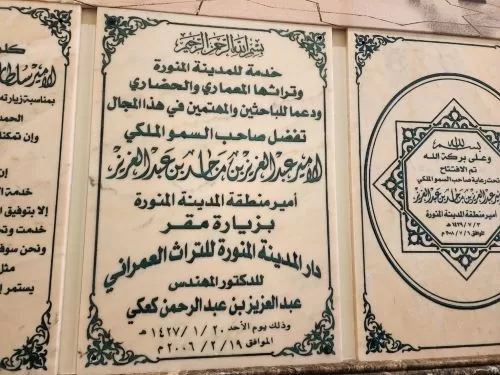 بسم الله
وعلى بركة الله
تم الافتتاح
تحت رعاية صاحب السمو الملكي
الأمير عبد العزيز بن ماجد بن عبد العزيز
أمير منطقة المدينة المنورة
٣ / ٧ / ١٤٢٩ هـ
الموافق ٦ / ٧ / ٢٠٠٨ م
بسم الله الرحمن الرحيم
خدمة للمدينة المنورة
وتراثها المعماري والحضاري
ودعما للباحثين والمهتمين في هذا المجال
تفضل صاحب السمو الملكي
الأمير عبد العزيز بن ماجد بن عبد العزيز
أمير منطقة المدينة المنورة
بزيارة مقر
دار المدينة المنورة للتراث العمراني
للدكتور المهندس
عبد العزيز بن عبد الرحمن كعكي
وذلك يوم الأحد ٢٠ / ١ / ١٤٢٧ هـ
الموافق ١٩ / ٢ / ٢٠٠٦ م
الأمير سلطا
بمناسبة زيارته
الحمد
خدمة
إلا بتوفيق
ونحن سوف
مثل
يستمر